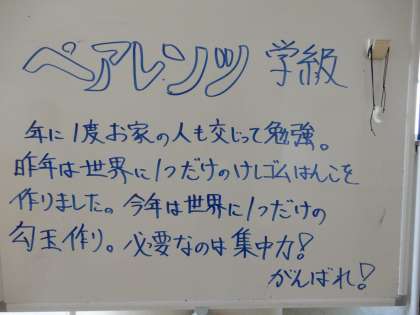 ペアレンツ 学級
年に1度お家の人も交じって勉強。
昨年は世界に1つだけのけしゴムはんこを
作りました。今年は世界に1つだけの
勾玉作り。必要なのは集中力!
がんばれ!